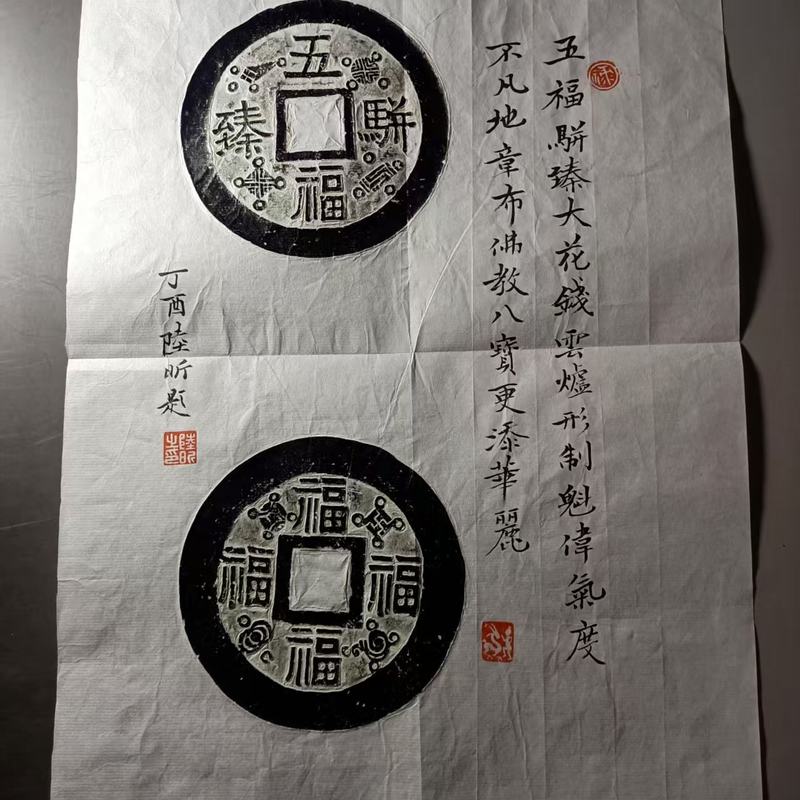 五福駢臻大花錢雲爐形制魁偉氣度
不凡地章布佛教八寶更添華麗
丁酉陸昕題
陸昕之印
五福駢臻
福福福福